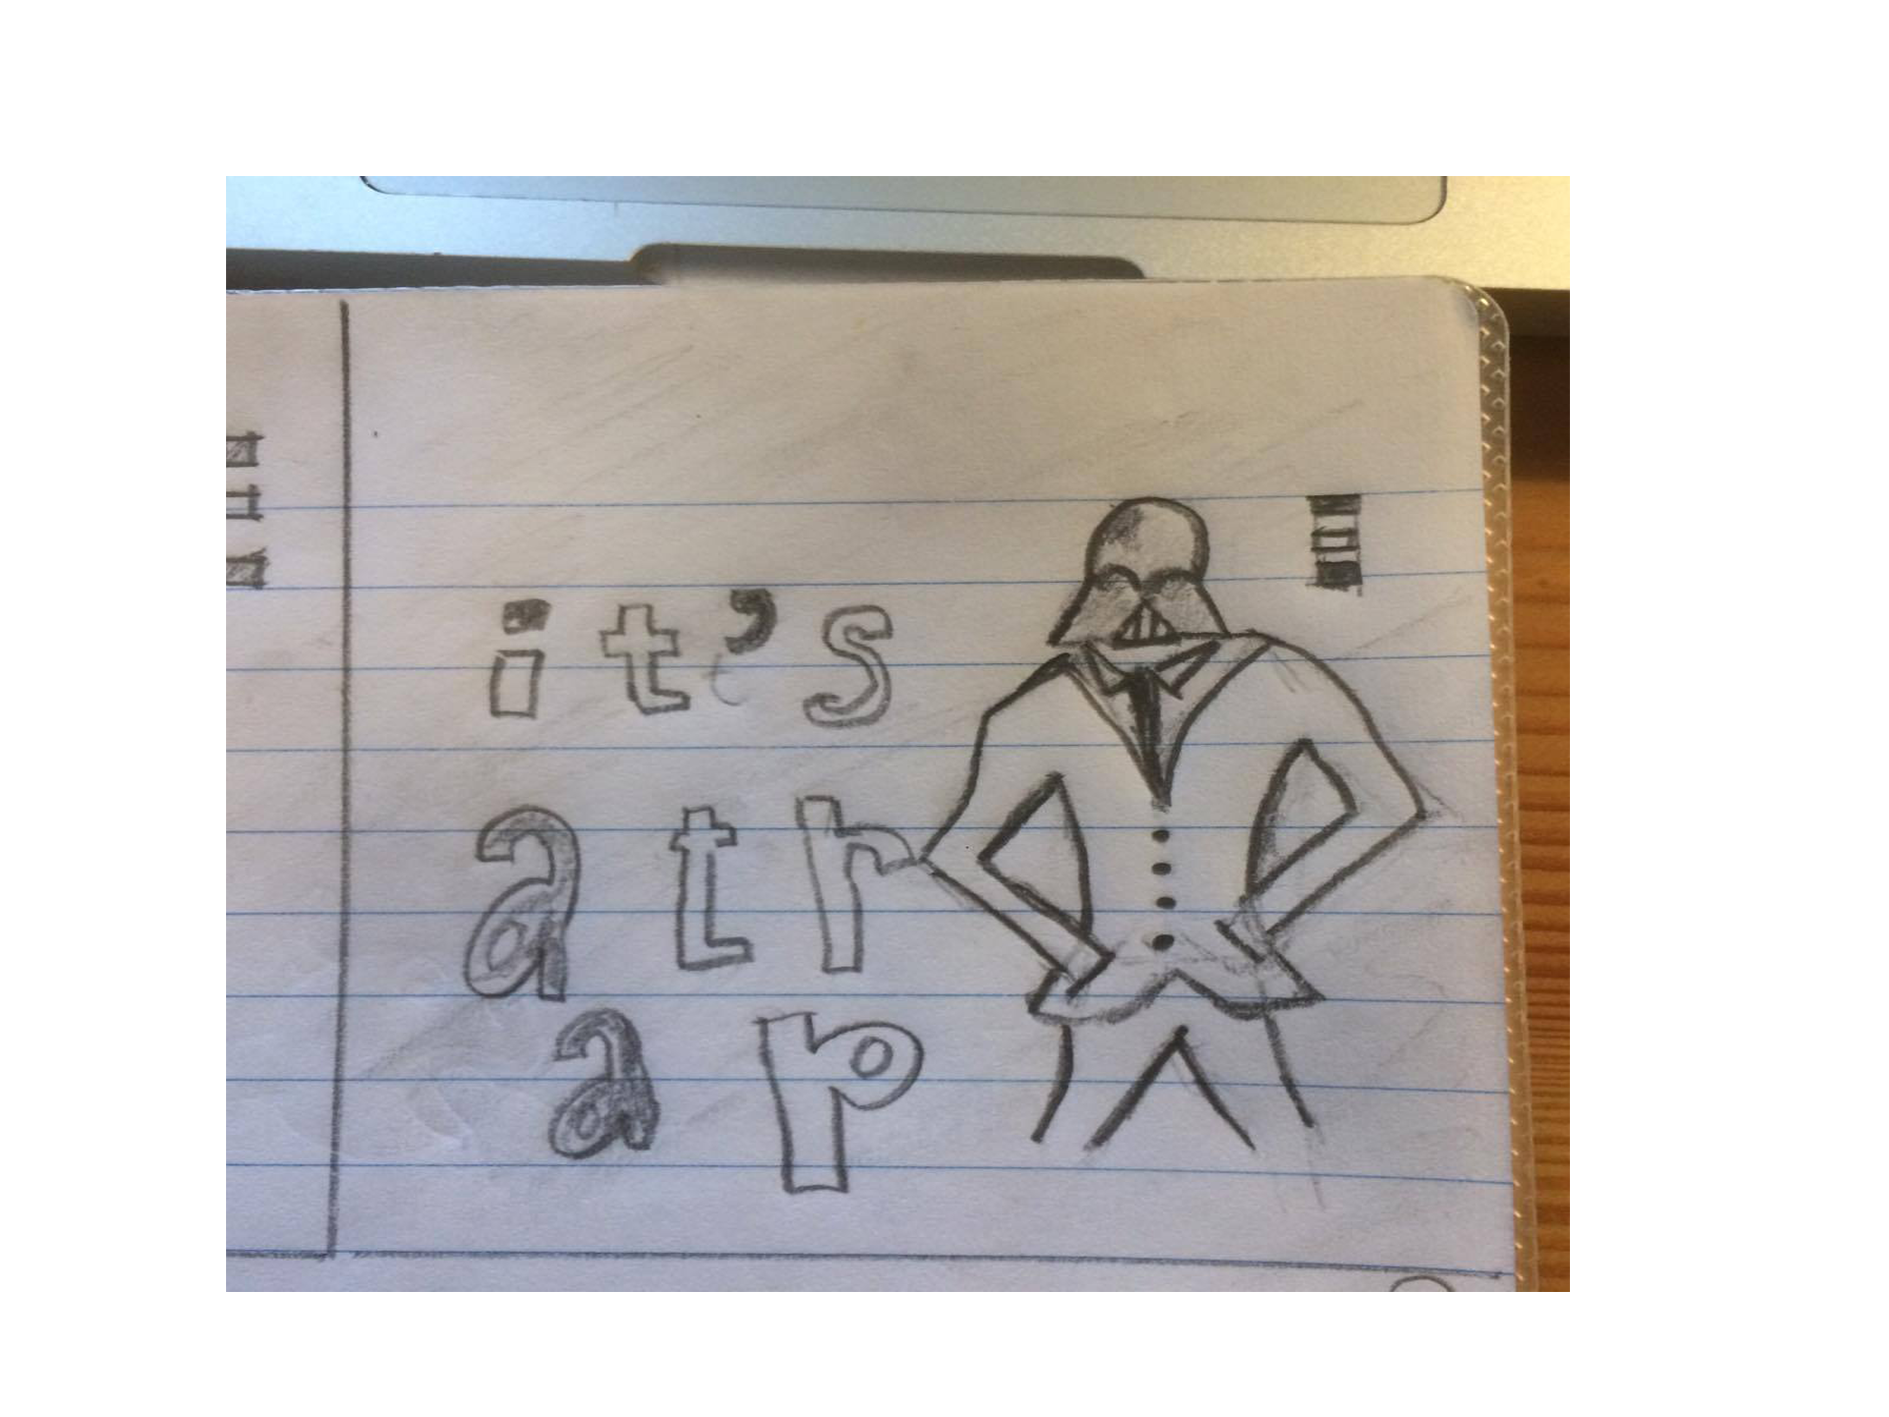 it's
atr
ap